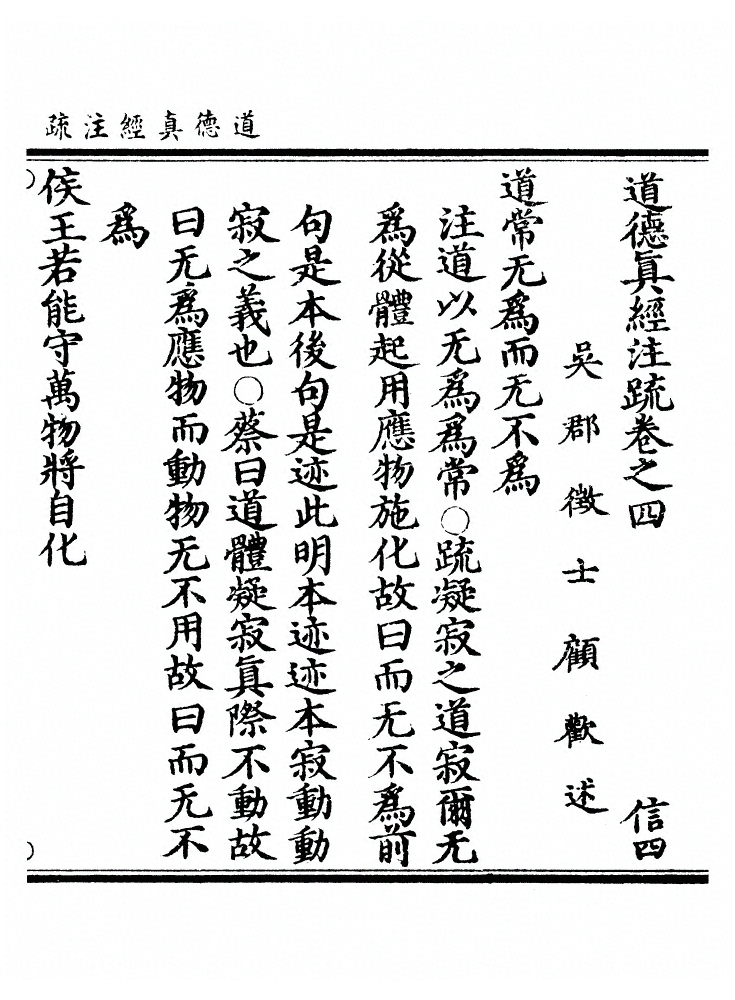 道德真經注疏
道德眞經注疏卷之四　信四
吳郡徵士顧歡述
道常无爲而无不爲
注道以无爲爲常○疏凝寂之道寂爾无
爲從體起用應物施化故曰而无不爲前
句是本後句是迹此明本迹迹本寂動動
寂之義也○蔡曰道體凝寂眞際不動故
曰无爲應物而動物无不用故曰而无不
爲
侯王若能守萬物將自化